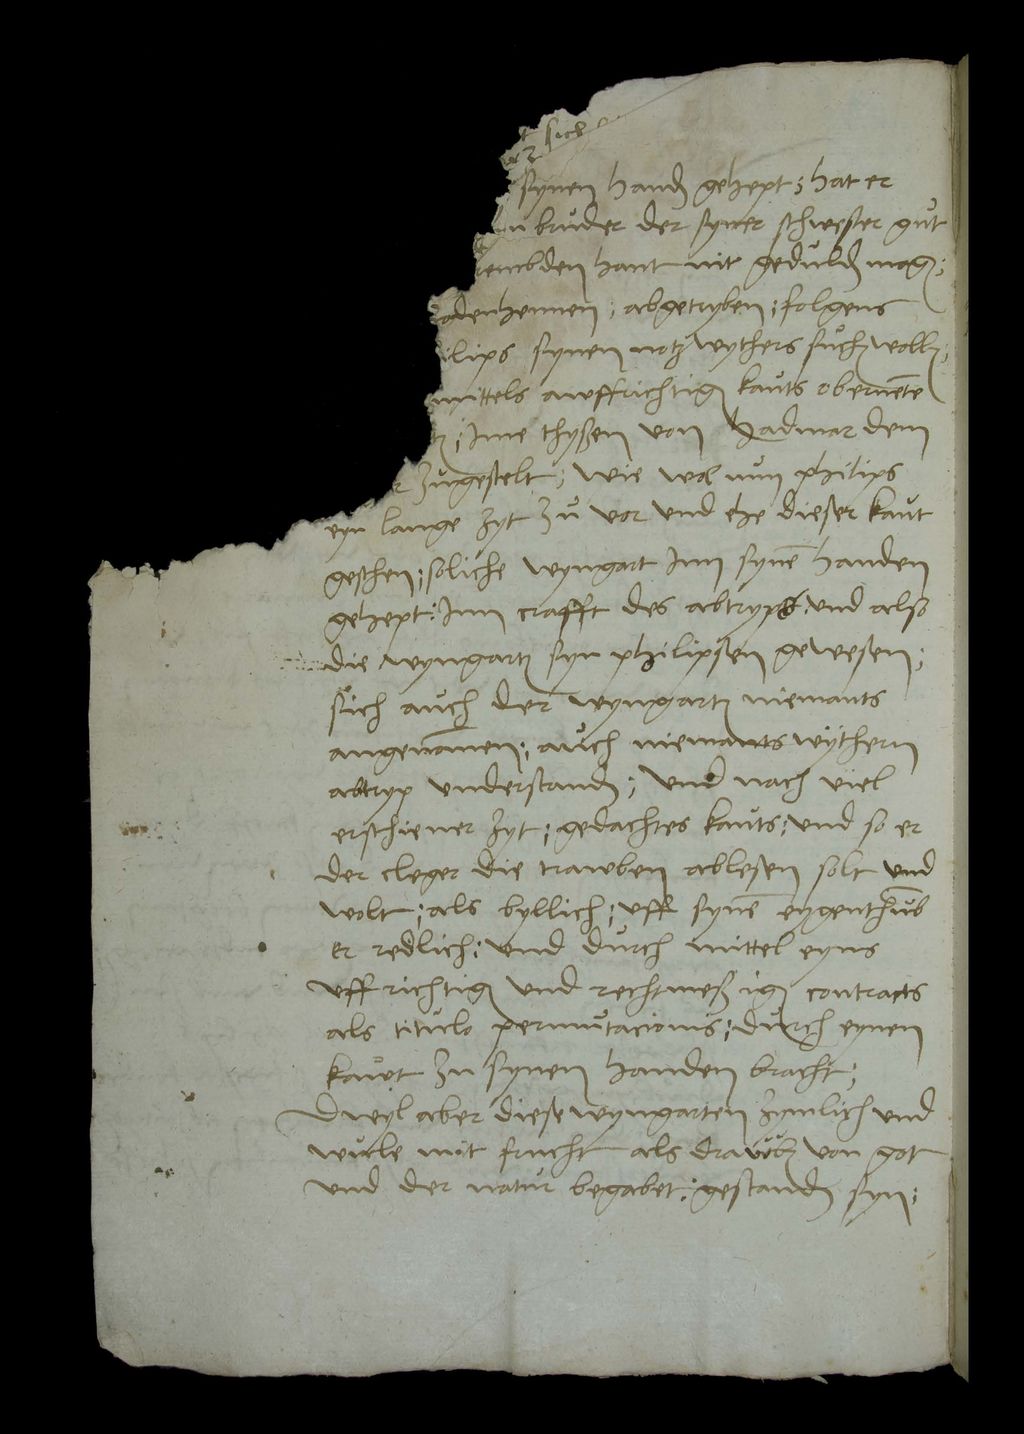 sich
synen hand gehept; hat er
bruder der syner schwester gut
rembden hant nit geduld mag;
adenhennen; abgetryben; folgens
ilips synen notz wythers such woll;
mittels auffrichtig kauts obernete
; Ime thyßen von hadmar dem
r zugestelt; wie wol nun philips
eyn lange zyt zu vor und ehe dieser kaut
geschen; soliche wyngart Inn synē handen
gehept: Inn crafft des abtryps. und also
die wyngart syn philipsen gewesen;
sich auch der wyngart niemants
angenāmen; auch niemants wythern
abtryp understand; und nach viel
erschiener zyt; gedachtes kauts; und so er
der cleger die trawben ablesen solt und
wolt; als byllich; uff synē eygenthūb
er redlich; und durch mittel eyns
uffrichtig und rechtmeßig contracts
als titulo permutacionis; durch eynen
kaut zu synen handen bracht;
Dweyl aber diese wyngarten zymlich und
wole mit frucht als drauub von got
und der natur begabet; gestand syn;